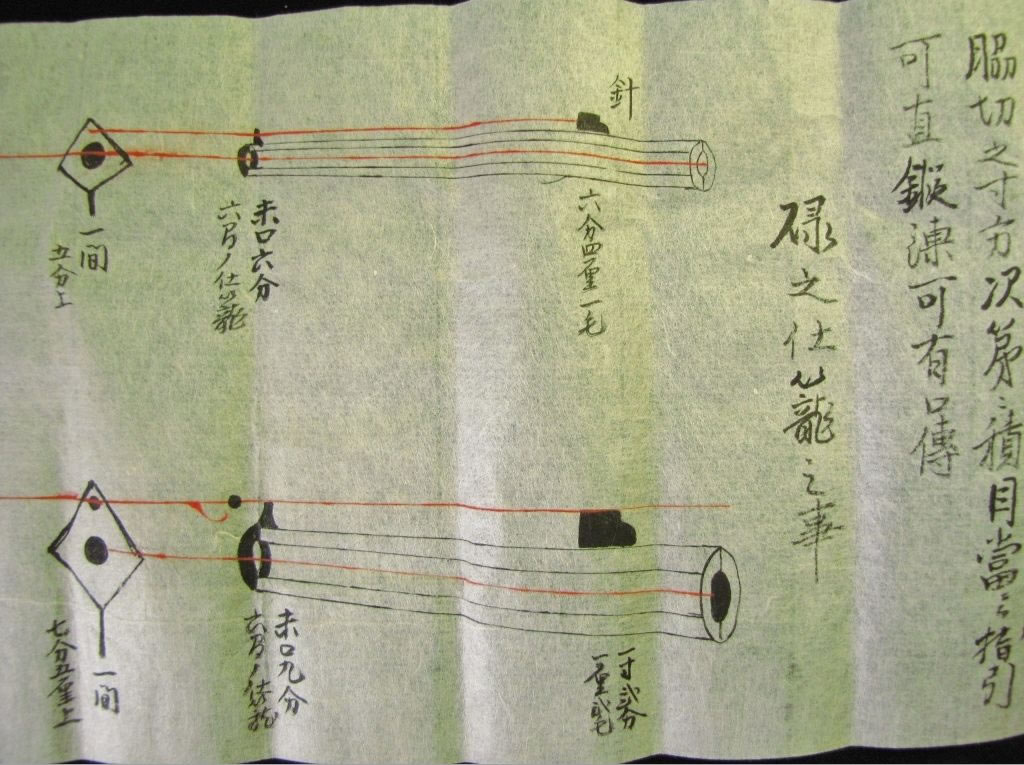 脇切之寸方次第ニ積目當ニ指引
可直鑢凍可有口傳
碌之仕込籠之事
針
六分四厘一毛
末口六分
六匁ノ仕込籠
一間
五分上
一寸弐分
一厘弐毛
末口九分
六匁ノ仕込籠
一間
七分五厘上